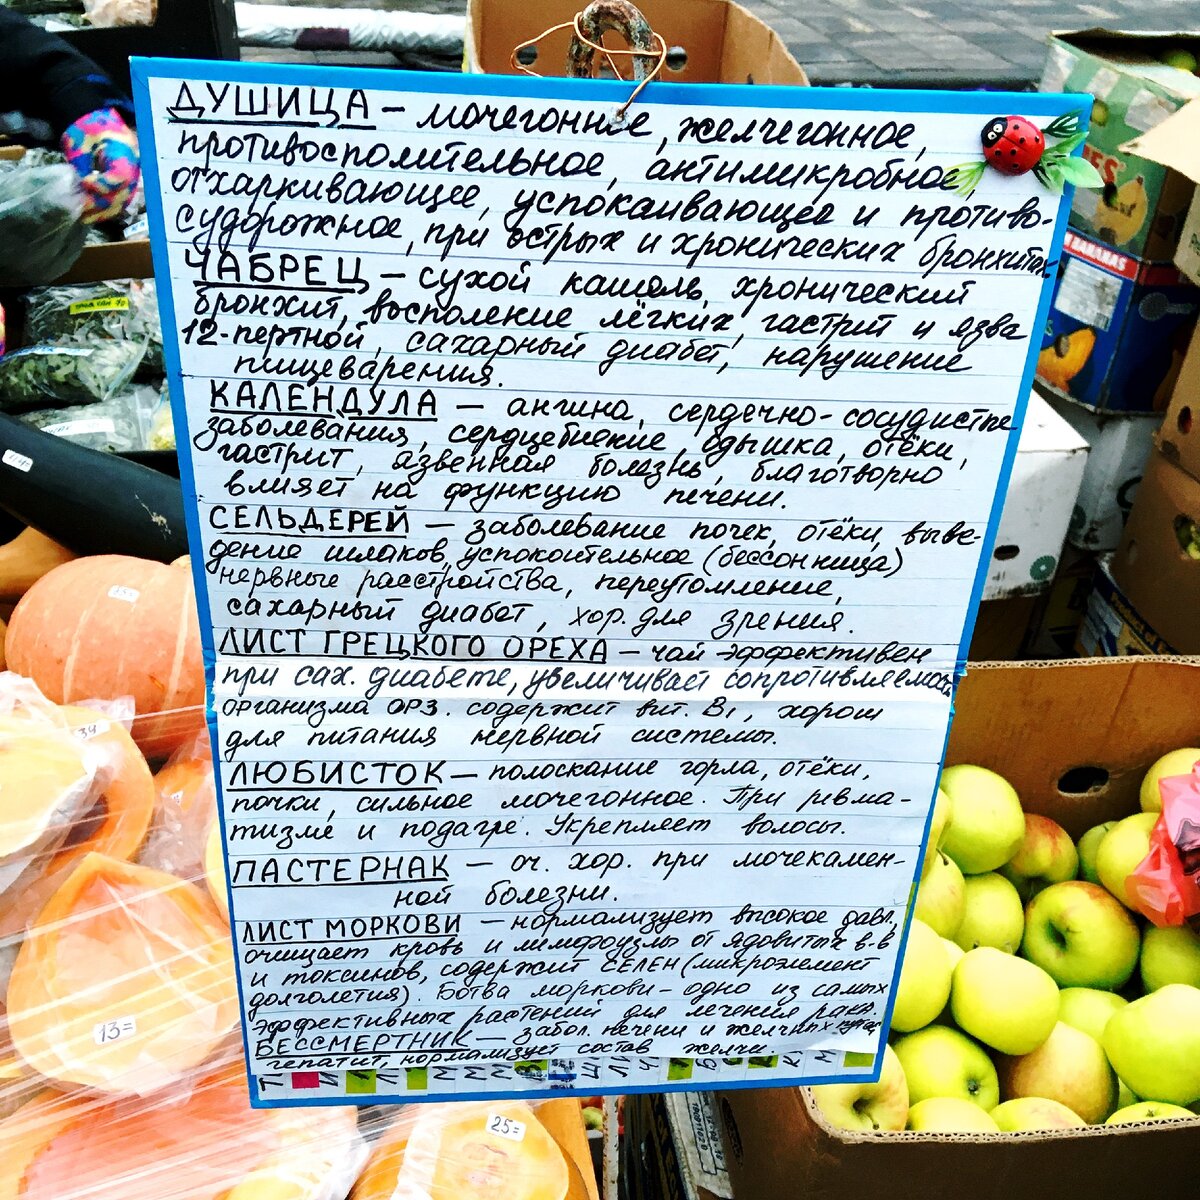 ДУШИЦА – мочегонное, желчегонное,
противосполительное, антимикробное,
отхаркивающее, успокаивающее и противо-
судорожное, при острых и хронических бронхитах
ЧАБРЕЦ – сухой кашель, хронический
бронхит, восполение лёгких, гастрит и язва
12-пертной, сахарный диабет, нарушение
пищеварения.
КАЛЕНДУЛА – ангина, сердечно-сосудистые
заболевания, сердцебиение, одышка, отёки,
гастрит, язвенная болезнь, благотворно
влияет на функцию печени.
СЕЛЬДЕРЕЙ – заболевание почек, отёки, выве-
дение шлаков, успокоительное (бессонница)
нервные расстройства, переутомление,
сахарный диабет, хор. для зрения.
ЛИСТ ГРЕЦКОГО ОРЕХА – чай эффективен
при сах. диабете, увеличивает сопротивляемость
организма ОРЗ. содержит вит. В1, хорош
для питания нервной системы.
ЛЮБИСТОК – полоскание горла, отёки,
почки, сильное мочегонное. При ревма-
тизме и подагре. Укрепляет волосы.
ПАСТЕРНАК – оч. хор. при мочекамен-
ной болезни.
ЛИСТ МОРКОВИ – нормализует высокое давл.,
очищает кровь и лимфоузлы от ядовитых в-в
и токсинов, содержит СЕЛЕН (микроэлемент
долголетия). Ботва моркови – одно из самых
эффективных растений для лечения рака.
БЕССМЕРТНИК – забол. печени и желчных
гепатит, нормализует состав желчи.
13=
25=
BANANAS